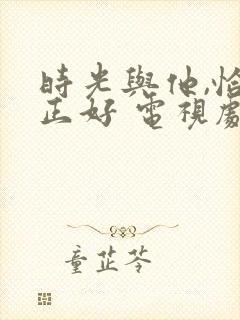 時光與他,恰
正好 電視劇
童芷苓